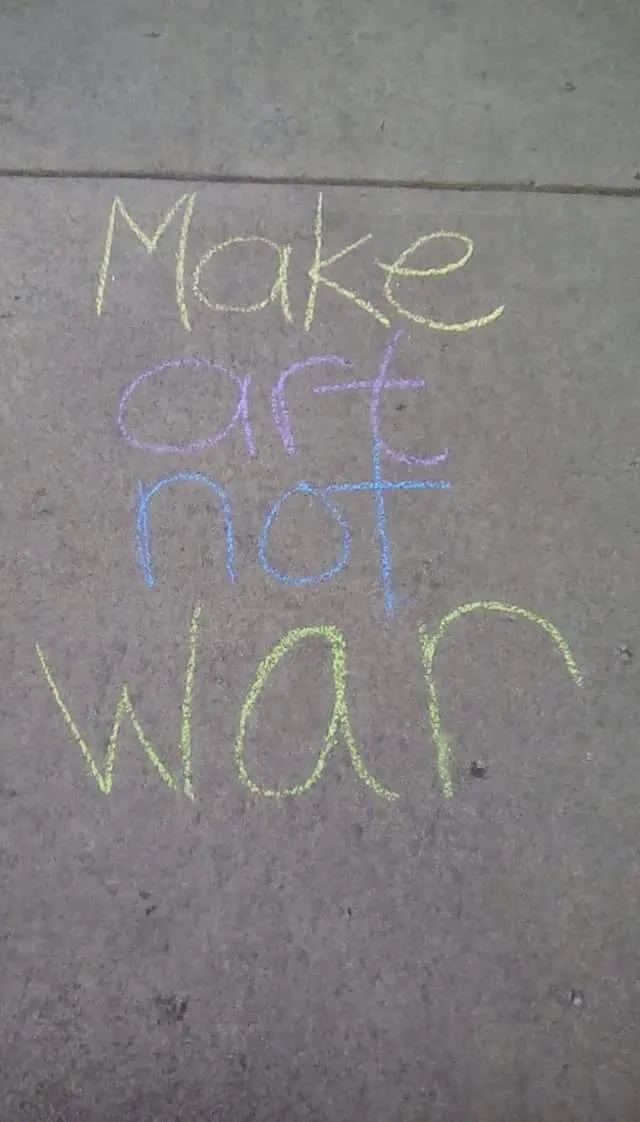 Make
art
not
war